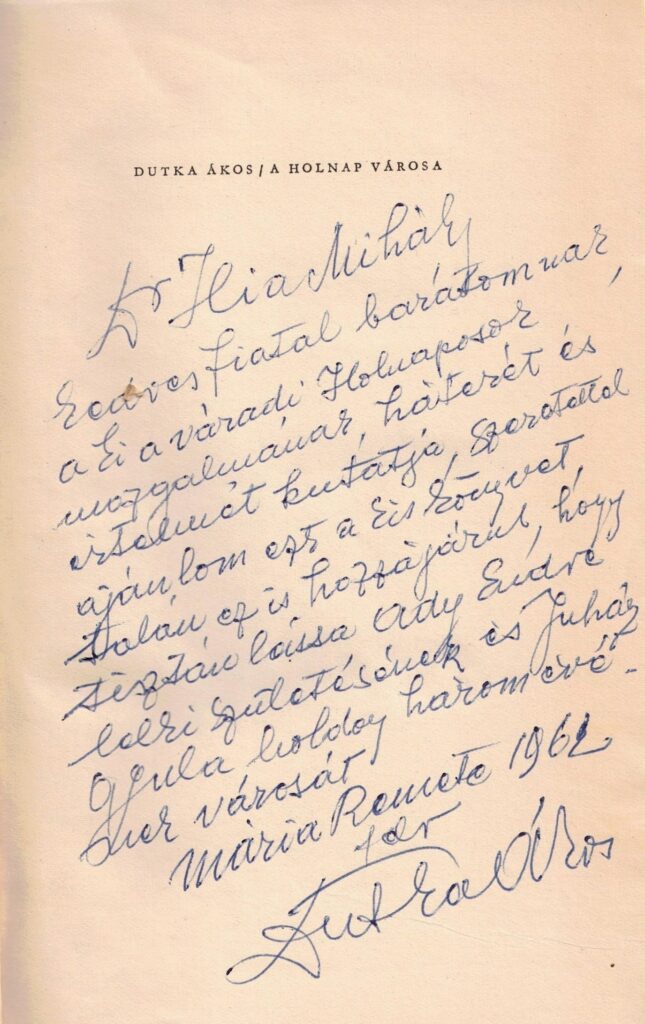 DUTKA ÁKOS / A HOLNAP VÁROSA
Dr Ilia Mihály
kedves fiatal barátomnak,
a ki a váradi Holnaposok
mozgalmának, háterét és
értelmét kutatja, szeretettel
ajánlom ezt a kis könyvet,
talán ez is hozzájárul, hogy
tisztán lássa Ady Endre
lelki születésének és Juhász
Gyula boldog három évé-
nek városát
Mária Remete 1962
Dutka Ákos